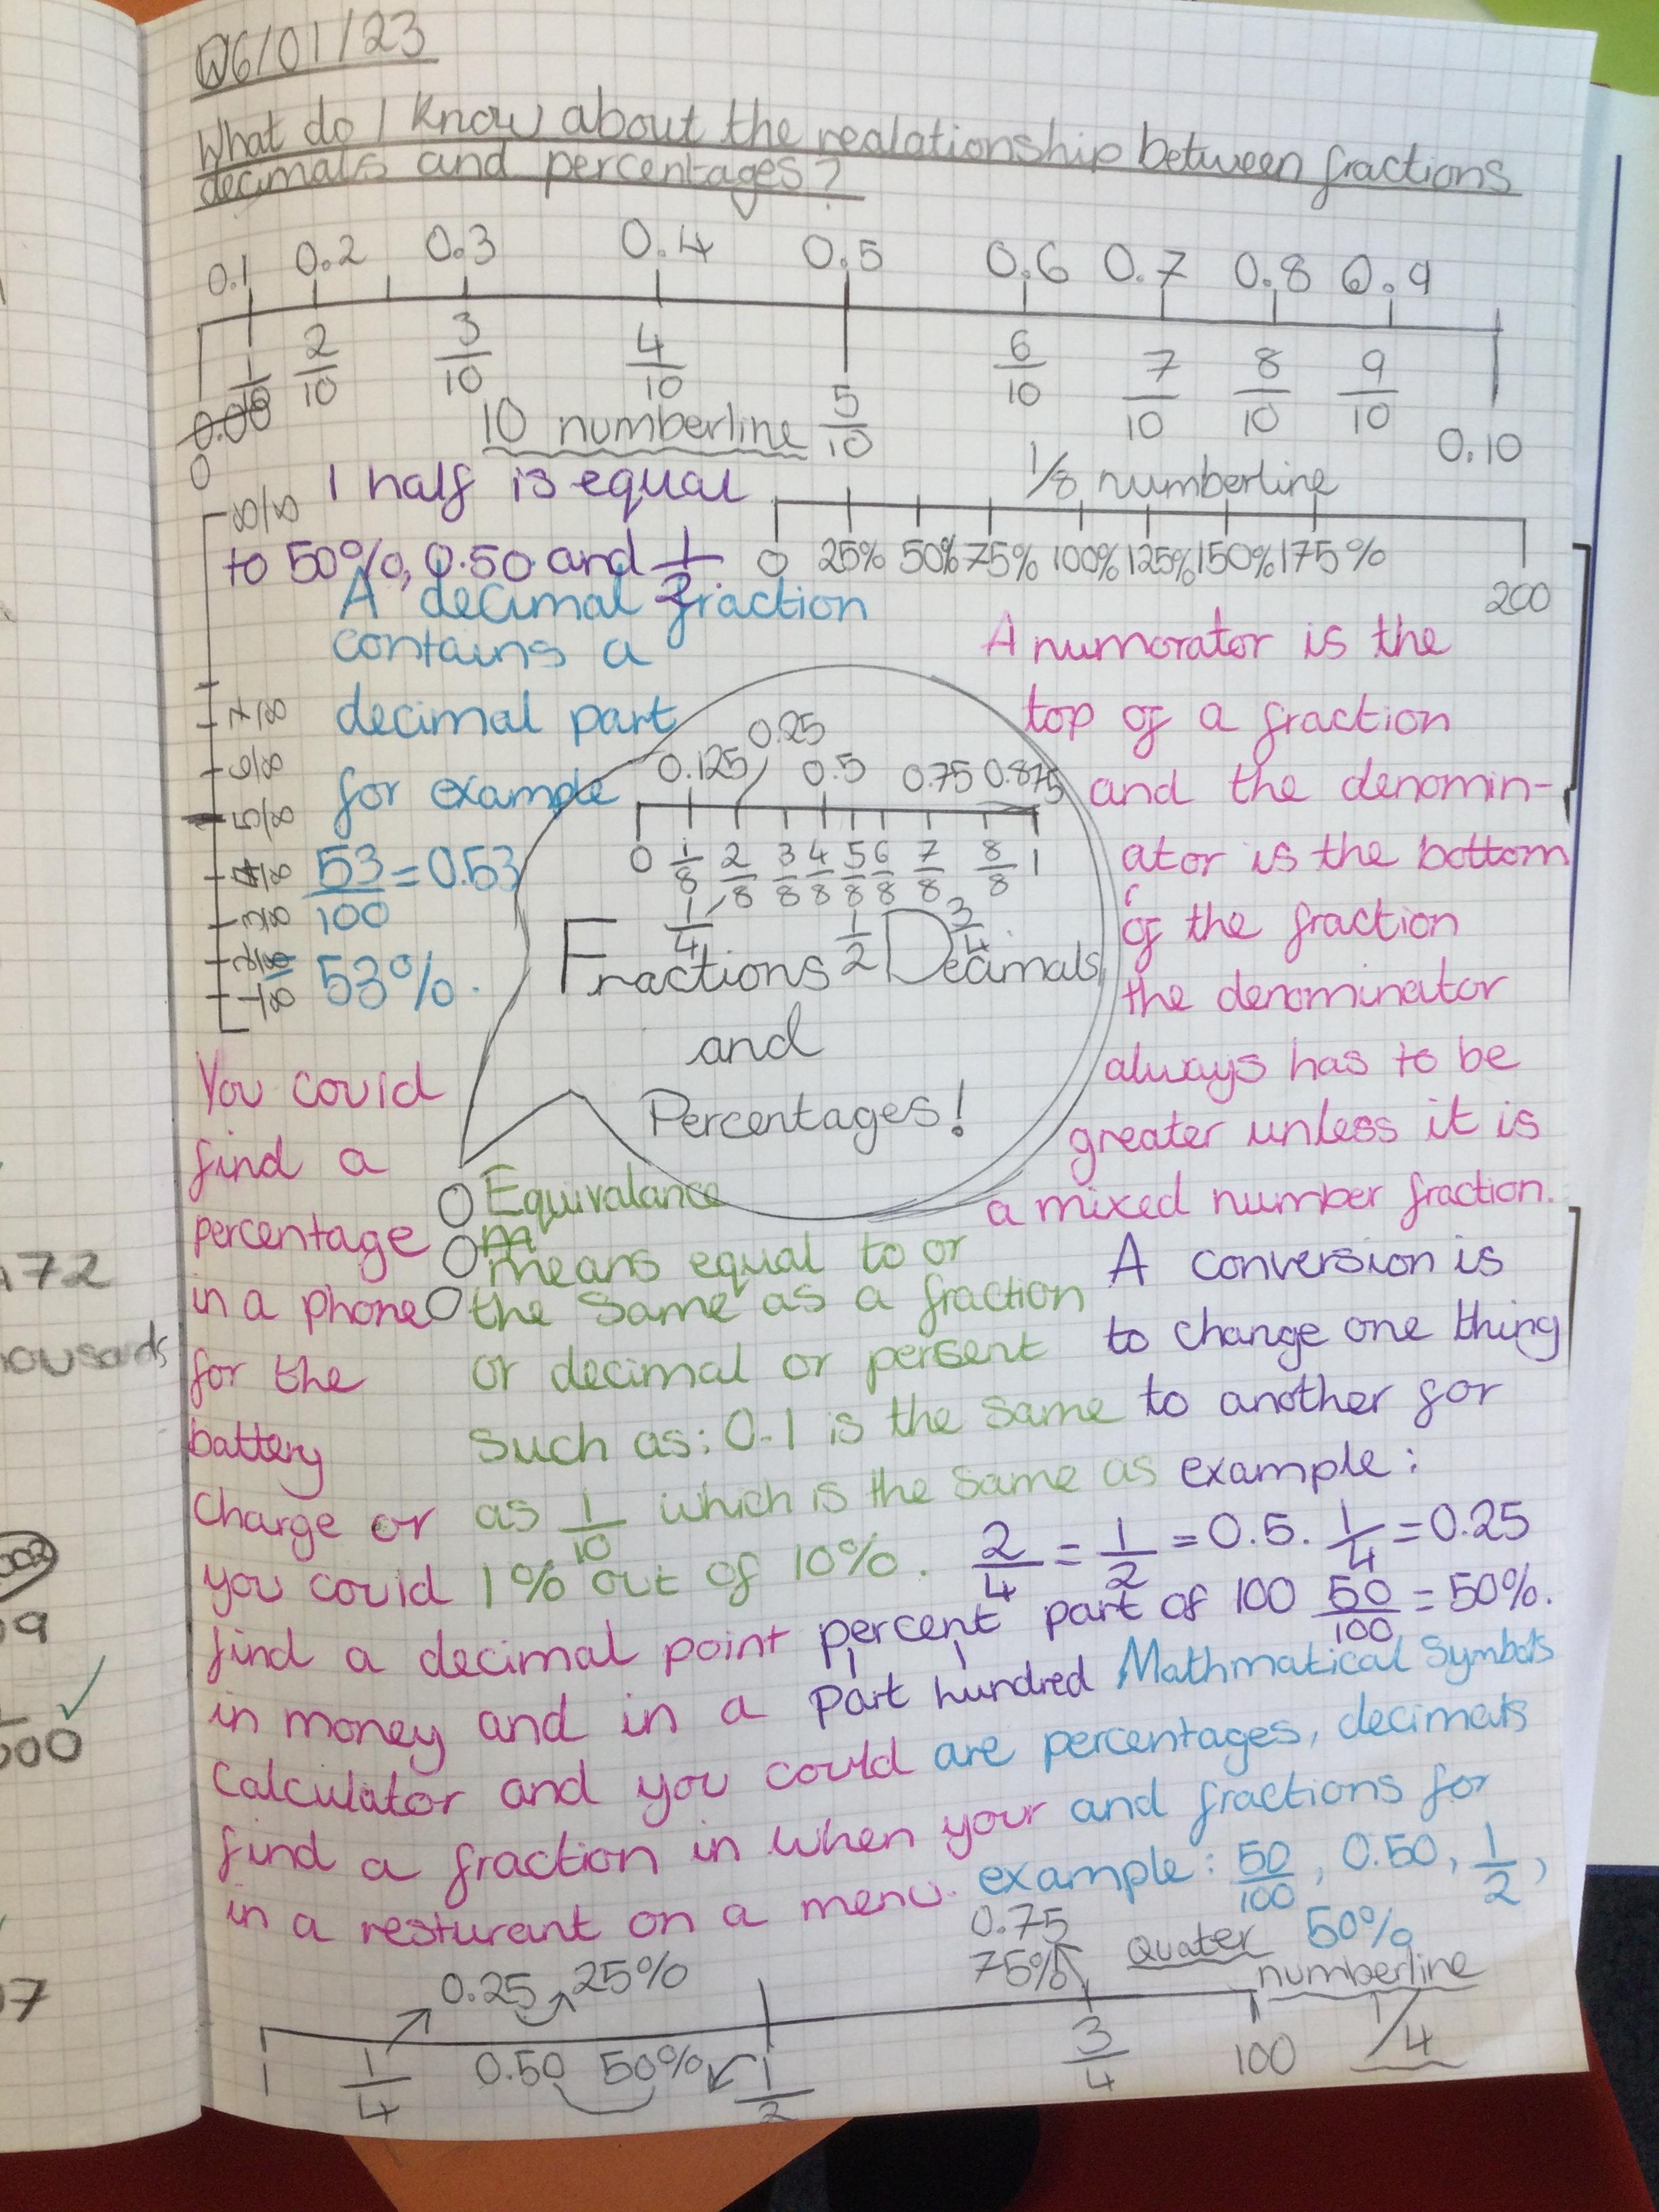 06/01/23
What do I know about the realationship between fractions
decimals and percentages?
0.1 0.2 0.3 0.4 0.5 0.6 0.7 0.8 0.9
1/10 2/10 3/10 4/10 5/10 6/10 7/10 8/10 9/10
0.00
0
0.10
10 numberline
1/8 numberline
0 25% 50% 75% 100% 125% 150% 175%
200
1 half is equal
to 50%, 0.50 and 1/2
8/8
7/8
6/8
5/8
4/8
3/8
2/8
1/8
A decimal fraction
contains a
decimal part
for example
53/100 = 0.53
= 53%.
0.125 0.25 0.5 0.75 0.875
0 1/8 2/8 3/8 4/8 5/8 6/8 7/8 8/8 1
1/4 1/2 3/4
Fractions Decimals
and
Percentages!
A numorator is the
top of a fraction
and the denomin-
ator is the bottom
of the fraction
the denominator
always has to be
greater unless it is
a mixed number fraction.
You could
find a
percentage
in a phone
for the
battery
charge or
you could
find a decimal point
in money and in a
calculator and you could
find a fraction in when your
in a resturant on a menu.
Equivalance
means equal to or
the same as a fraction
or decimal or persent
such as: 0.1 is the same
as 1/10 which is the same as
1% out of 10%.
A conversion is
to change one thing
to another for
example:
2/4 = 1/2 = 0.5. 1/4 = 0.25
percent part of 100 50/100 = 50%.
part hundred
Mathmatical symbols
are percentages, decimals
and fractions for
example: 50/100, 0.50, 1/2,
50%
Quater
numberline
1/4
0.25 25%
0.75
75%
1 1/4 0.50 50% 1/2 3/4 100
172
housands
002
9
000
7